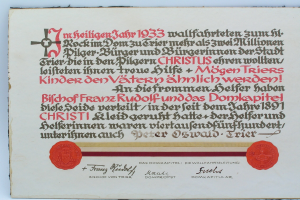 Im heiligen Jahr 1933 wallfahrteten zum hl.
Rock im Dom zu Trier mehr als zwei Millionen
Pilger · Bürger und Bürgerinnen der Stadt
Trier · die in den Pilgern CHRISTUS ehren wollten /
leisteten ihnen treue Hilfe + Mögen Triers
Kinder den Vätern ähnlich werden!
An die frommen Helfer haben
Bischof Franz Rudolf und das Domkapitel
diese Gabe verteilt / in der seit dem Jahre 1891
CHRISTI Kleid geruht hatte + der Helfer und
Helferinnen waren viertausendfünfhundert /
unter ihnen auch Peter Oswald · Trier
+ Franz Rudolf